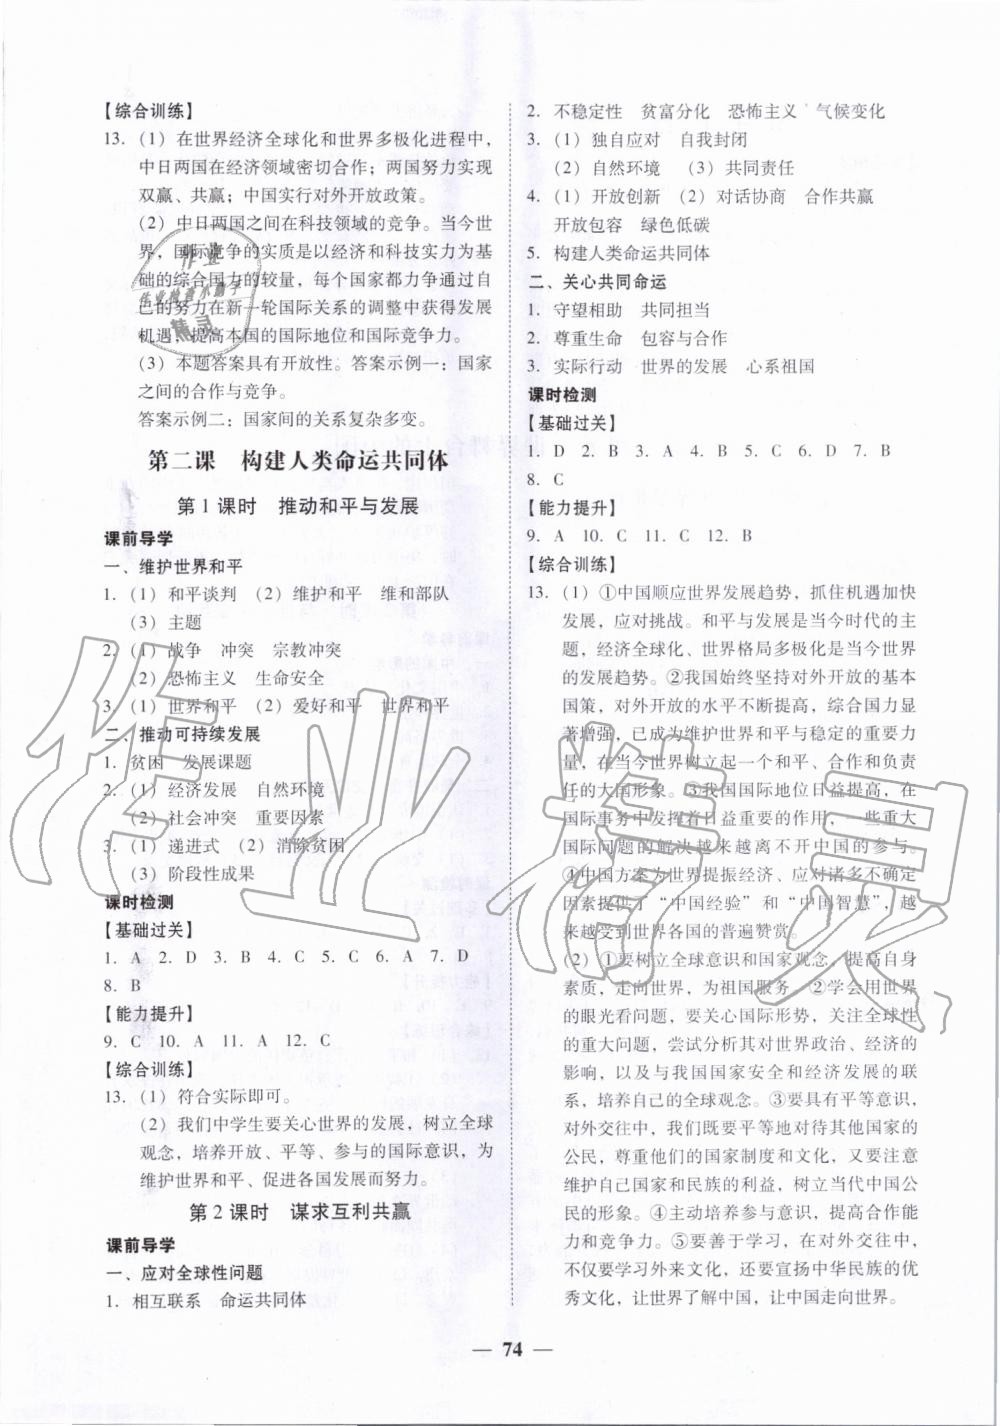 【综合训练】
13. (1) 在世界经济全球化和世界多极化进程中，
中日两国在经济领域密切合作；两国努力实现
双赢、共赢；中国实行对外开放政策。
(2) 中日两国之间在科技领域的竞争。当今世
界，国际竞争的实质是以经济和科技实力为基
础的综合国力的较量，每个国家都力争通过自
己的努力在新一轮国际关系的调整中获得发展
机遇，提高本国的国际地位和国际竞争力。
(3) 本题答案具有开放性。答案示例一：国家
之间的合作与竞争。
答案示例二：国家间的关系复杂多变。
第二课 构建人类命运共同体
第 1 课时 推动和平与发展
课前导学
一、维护世界和平
1. (1) 和平谈判 (2) 维护和平 维和部队
(3) 主题
2. (1) 战争 冲突 宗教冲突
(2) 恐怖主义 生命安全
3. (1) 世界和平 (2) 爱好和平 世界和平
二、推动可持续发展
1. 贫困 发展课题
2. (1) 经济发展 自然环境
(2) 社会冲突 重要因素
3. (1) 递进式 (2) 消除贫困
(3) 阶段性成果
课时检测
【基础过关】
1. A 2. D 3. B 4. C 5. C 6. A 7. D
8. B
【能力提升】
9. C 10. A 11. A 12. C
【综合训练】
13. (1) 符合实际即可。
(2) 我们中学生要关心世界的发展，树立全球
观念，培养开放、平等、参与的国际意识，为
维护世界和平、促进各国发展而努力。
第 2 课时 谋求互利共赢
课前导学
一、应对全球性问题
1. 相互联系 命运共同体
2. 不稳定性 贫富分化 恐怖主义 气候变化
3. (1) 独自应对 自我封闭
(2) 自然环境 (3) 共同责任
4. (1) 开放创新 (2) 对话协商 合作共赢
开放包容 绿色低碳
5. 构建人类命运共同体
二、关心共同命运
1. 守望相助 共同担当
2. 尊重生命 包容与合作
3. 实际行动 世界的发展 心系祖国
课时检测
【基础过关】
1. D 2. B 3. A 4. B 5. C 6. D 7. B
8. C
【能力提升】
9. A 10. C 11. C 12. B
【综合训练】
13. (1) ①中国顺应世界发展趋势，抓住机遇加快
发展，应对挑战。和平与发展是当今时代的主
题，经济全球化、世界格局多极化是当今世界
的发展趋势。②我国始终坚持对外开放的基本
国策，对外开放的水平不断提高，综合国力显
著增强，已成为维护世界和平与稳定的重要力
量，在当今世界树立起一个和平、合作和负责
任的大国形象。③我国国际地位日益提高，在
国际事务中发挥着日益重要的作用，一些重大
国际问题的解决越来越离不开中国的参与。
④中国方案为世界提振经济、应对诸多不确定
因素提供了“中国经验”和“中国智慧”，越
来越受到世界各国的普遍赞赏。
(2) ①要树立全球意识和国家观念，提高自身
素质，走向世界，为祖国服务。②学会用世界
的眼光看问题，要关心国际形势，关注全球性
的重大问题，尝试分析其对世界政治、经济的
影响，以及与我国国家安全和经济发展的联
系，培养自己的全球观念。③要具有平等意识，
对外交往中，我们既要平等地对待其他国家的
公民，尊重他们的国家制度和文化，又要注意
维护自己国家和民族的利益，树立当代中国公
民的形象。④主动培养参与意识，提高合作能
力和竞争力。⑤要善于学习，在对外交往中，
不仅要学习外来文化，还要宣扬中华民族的优
秀文化，让世界了解中国，让中国走向世界。
— 74 —
作业
作业检查小助手
精灵
作业精灵